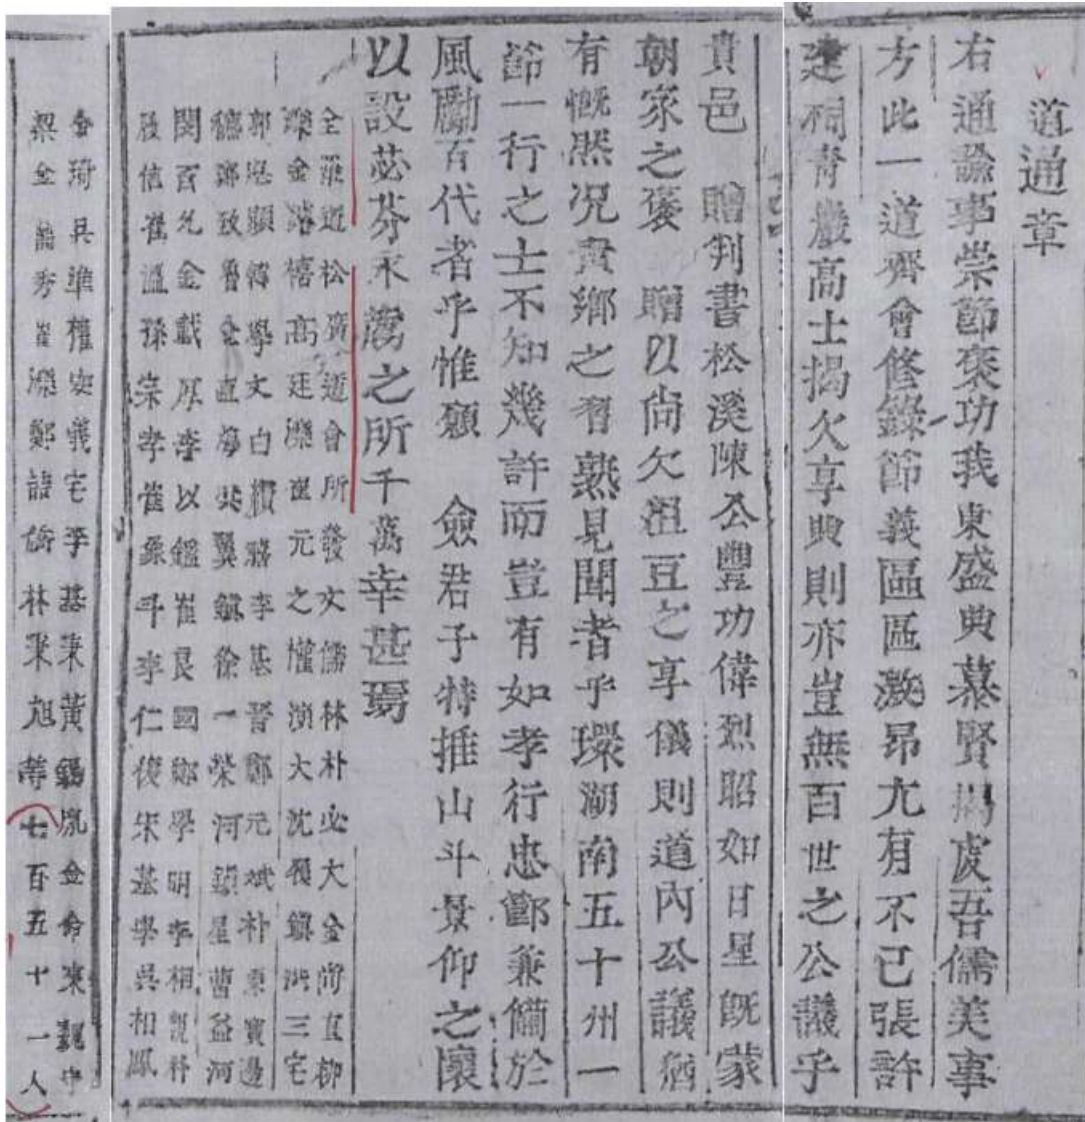 道通章
右通諭事崇節褒功我東盛典慕賢揭虔吾儒美事
方此一道齊會修錄節義區區激昂尤有不已張許
建祠青巖高士揭欠享典則亦豈無百世之公議乎
貴邑 贈判書松溪陳公豐功偉烈昭如日星旣蒙
朝家之褒 贈以尙欠俎豆之享儀則道內公議猶
有慨然況貴鄕之習熟見聞者乎環湖南五十州一
節一行之士不知幾許而豈有如孝行忠節兼備於
風勵百代者乎惟願 僉君子特推山斗景仰之懷
以設苾芬永薦之所千萬幸甚焉
全羅道松廣道會所發文儒林朴必大金尙直柳
濼金禧高廷濼崔元之權瀕大沈鎭洪三宅
郭 顯 學文白 李基晉鄭元斌朴秉寅邊
鄭致魯金直 翼鎭徐一榮河鎭星曹益河
閔百允金載厚李以鑑崔良國鄭學明李相說朴
信崔溫孫宗孝崔 斗李仁復宋基學吳相鳳
金琦兵準權 義宅李基秉黃錫胤金命東魏
梁金 秀崔 鄭 林秉旭等七百五十一人